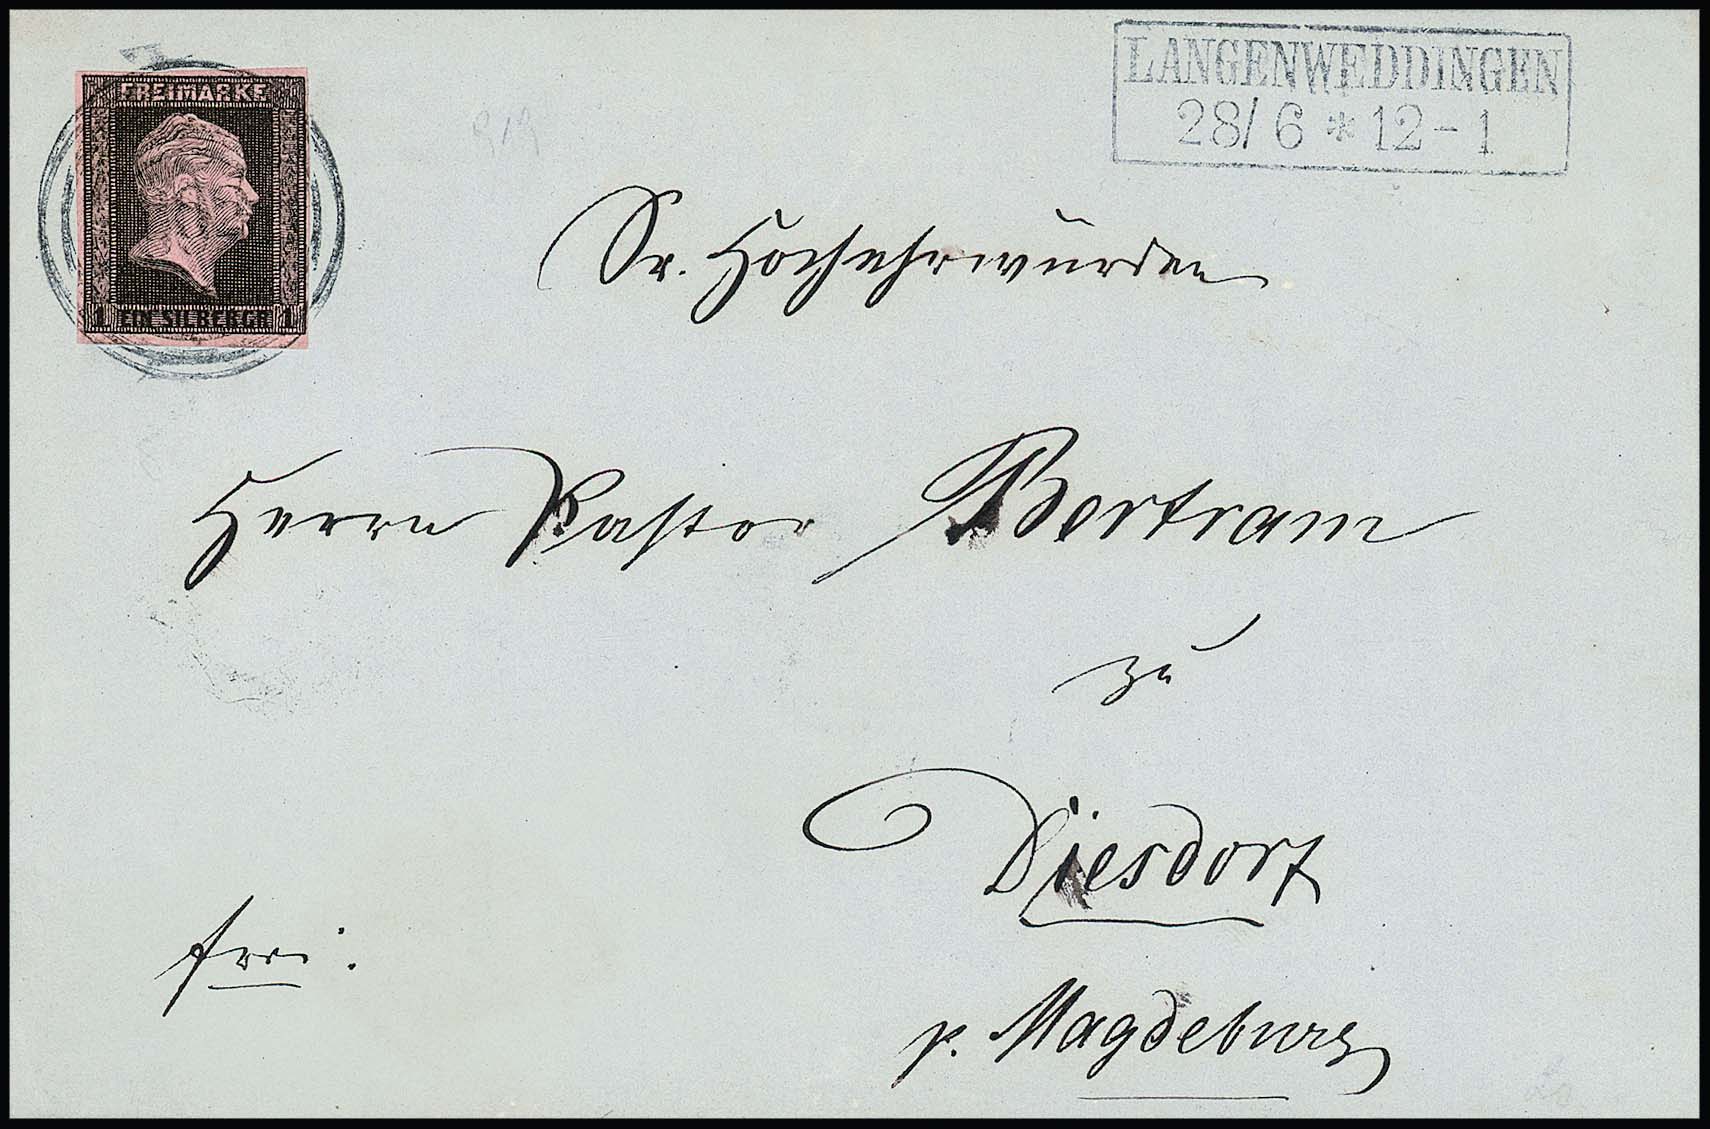 FREIMARKE
1 EIN SILBERGR 1
LANGENWEDDINGEN
28/6 * 12-1
Sr. Hochehrwürden
Herrn Pastor Bertram
zu
Diesdorf
frei.
p. Magdeburg